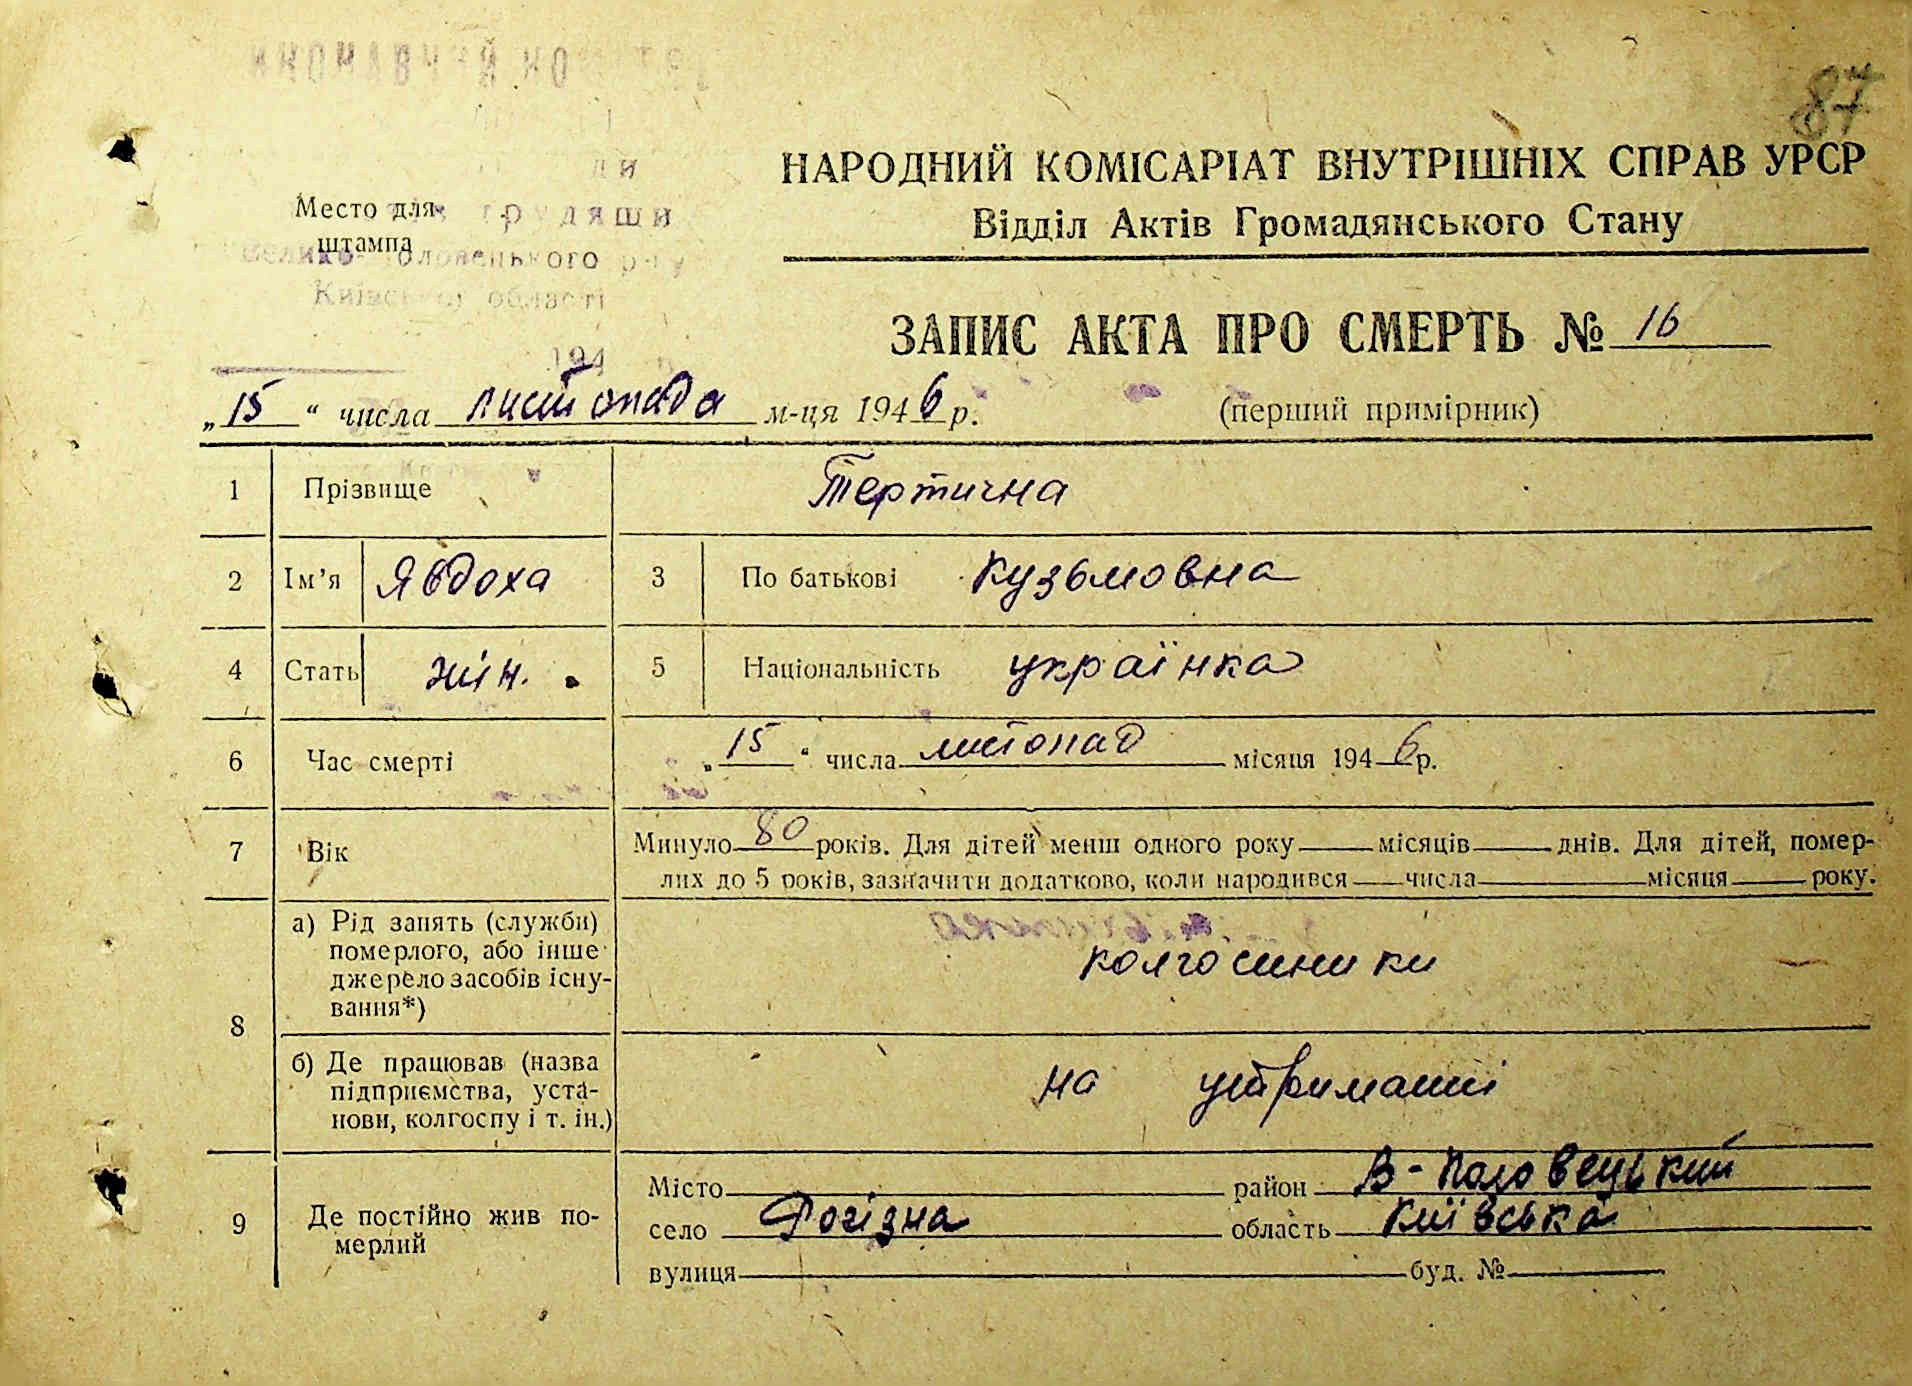 87
НАРОДНИЙ КОМІСАРІАТ ВНУТРІШНІХ СПРАВ УРСР
Відділ Актів Громадянського Стану
Место для
штампа
трудящи
Велико-Половецького р-ну
Київської області
194
ЗАПИС АКТА ПРО СМЕРТЬ № 16
„15“ числа листопада м-ця 1946 р. (перший примірник)
1 Прізвище Тертична
2 Ім’я Явдоха 3 По батькові Кузьмовна
4 Стать жін. 5 Національність українка
6 Час смерті „15“ числа листопад місяця 1946 р.
7 Вік Минуло 80 років. Для дітей менш одного року місяців днів. Для дітей, помер-
лих до 5 років, зазначити додатково, коли народився числа місяця року.
8 а) Рід занять (служби)
померлого, або інше
джерело засобів існу-
вання*)
колгоспники
б) Де працював (назва
підприємства, уста-
нови, колгоспу і т. ін.)
на утриманні
9 Де постійно жив по-
мерлий
Місто район В-Половецький
село Рогізна область Київська
вулиця буд. №